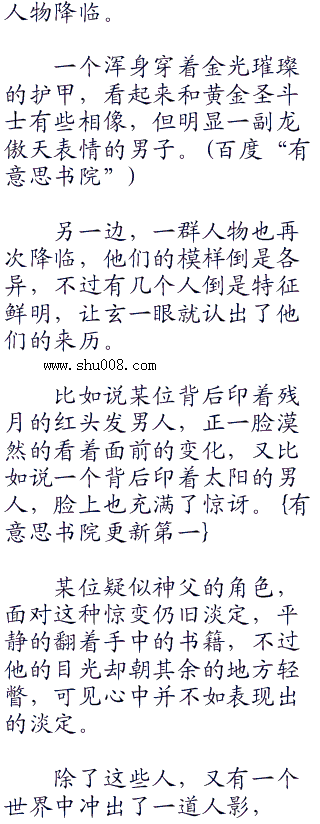 人物降临。
一个浑身穿着金光璀璨
的护甲，看起来和黄金圣斗
士有些相像，但明显一副龙
傲天表情的男子。(百度“有
意思书院”)
另一边，一群人物也再
次降临，他们的模样倒是各
异，不过有几个人倒是特征
鲜明，让玄一眼就认出了他
们的来历。
www.shu008.com
比如说某位背后印着残
月的红头发男人，正一脸漠
然的看着面前的变化，又比
如说一个背后印着太阳的男
人，脸上也充满了惊讶。{有
意思书院更新第一}
某位疑似神父的角色，
面对这种惊变仍旧淡定，平
静的翻着手中的书籍，不过
他的目光却朝其余的地方轻
瞥，可见心中并不如表现出
的淡定。
除了这些人，又有一个
世界中冲出了一道人影，